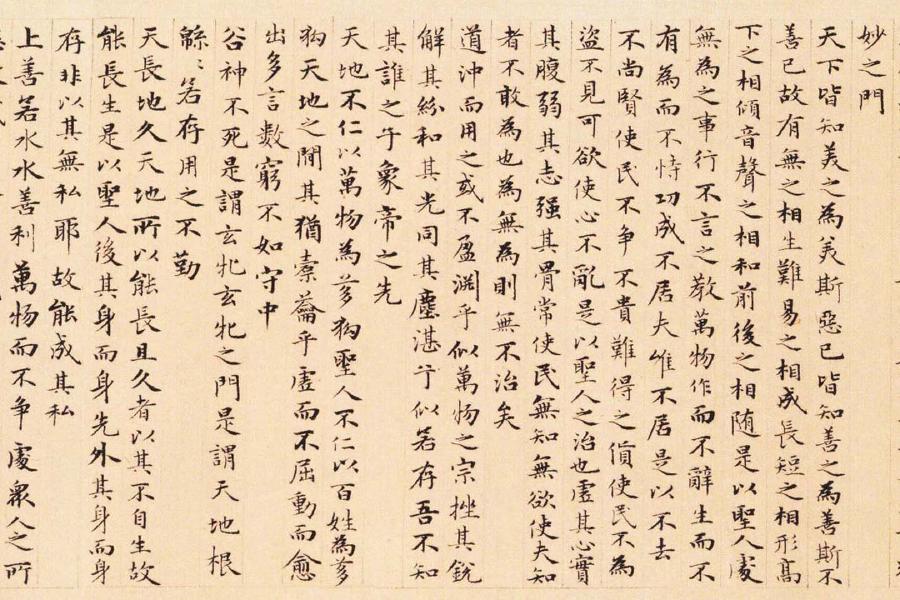 妙之門
天下皆知美之為美斯惡已皆知善之為善斯不
善已故有無之相生難易之相成長短之相形高
下之相傾音聲之相和前後之相随是以聖人處
無為之事行不言之教萬物作而不辭生而不
有為而不恃功成不居夫惟不居是以不去
不尚賢使民不争不貴難得之貨使民不為
盗不見可欲使心不亂是以聖人之治也虛其心實
其腹弱其志强其骨常使民無知無欲使夫知
者不敢為也為無為則無不治矣
道沖而用之或不盈淵乎似萬物之宗挫其銳
解其紛和其光同其塵湛兮似若存吾不知
其誰之子象帝之先
天地不仁以萬物為芻狗聖人不仁以百姓為芻
狗天地之間其猶橐籥乎虛而不屈動而愈
出多言數窮不如守中
谷神不死是謂玄牝玄牝之門是謂天地根
綿〻若存用之不勤
天長地久天地所以能長且久者以其不自生故
能長生是以聖人後其身而身先外其身而身
存非以其無私耶故能成其私
上善若水水善利萬物而不争處衆人之所